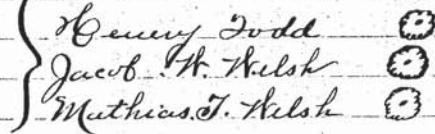 Henery Todd
Jacob W. Welsh
Mathias. T. Welsh